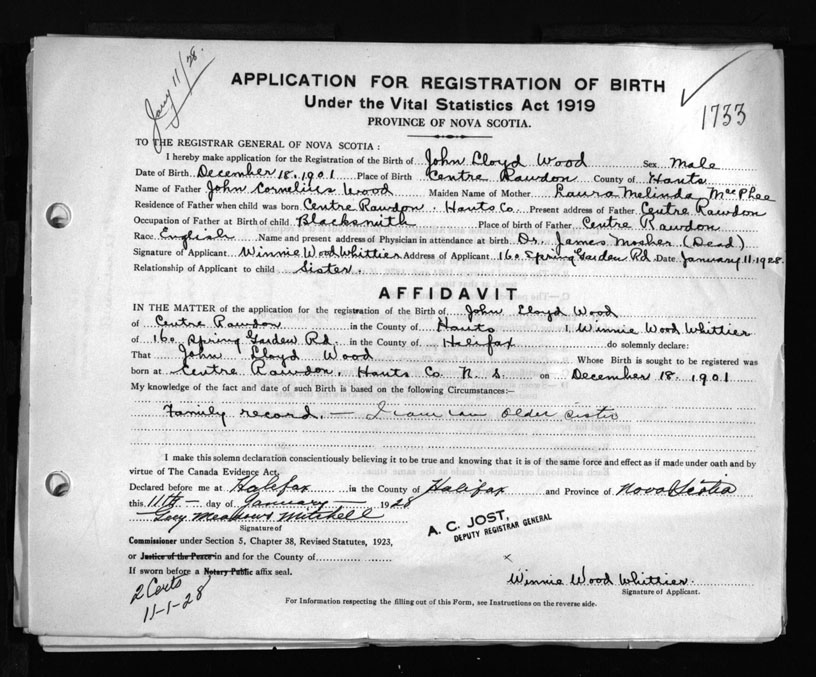 Jany 11/28.
APPLICATION FOR REGISTRATION OF BIRTH
Under the Vital Statistics Act 1919
PROVINCE OF NOVA SCOTIA.
1733
TO THE REGISTRAR GENERAL OF NOVA SCOTIA :
I hereby make application for the Registration of the Birth of John Lloyd Wood Sex Male
Date of Birth December 18, 1901 Place of Birth Centre Rawdon County of Hants
Name of Father John Cornelius Wood Maiden Name of Mother Laura Melinda McPhee
Residence of Father when child was born Centre Rawdon, Hants Co. Present address of Father Centre Rawdon
Occupation of Father at Birth of child Blacksmith Place of birth of Father Centre Rawdon
Race English Name and present address of Physician in attendance at birth Dr. James Mosher (Dead)
Signature of Applicant Winnie Wood Whittier Address of Applicant 160 Spring Garden Rd. Date January 11, 1928.
Relationship of Applicant to child Sister.
AFFIDAVIT
IN THE MATTER of the application for the registration of the Birth of John Lloyd Wood
of Centre Rawdon in the County of Hants I Winnie Wood Whittier
of 160 Spring Garden Rd. in the County of Halifax do solemnly declare:
That John Lloyd Wood Whose Birth is sought to be registered was
born at Centre Rawdon, Hants Co. N. S. on December 18, 1901
My knowledge of the fact and date of such Birth is based on the following Circumstances:—
Family record — I am an older sister
I make this solemn declaration conscientiously believing it to be true and knowing that it is of the same force and effect as if made under oath and by
virtue of The Canada Evidence Act.
Declared before me at Halifax in the County of Halifax and Province of Nova Scotia
this 11th day of January 1928
Meadows Mitchell
Signature of
A. C. JOST,
DEPUTY REGISTRAR GENERAL
Commissioner under Section 5, Chapter 38, Revised Statutes, 1923,
or Justice of the Peace in and for the County of
If sworn before a Notary Public affix seal.
x
Winnie Wood Whittier
Signature of Applicant.
2 Certs
11-1-28
For Information respecting the filling out of this Form, see Instructions on the reverse side.